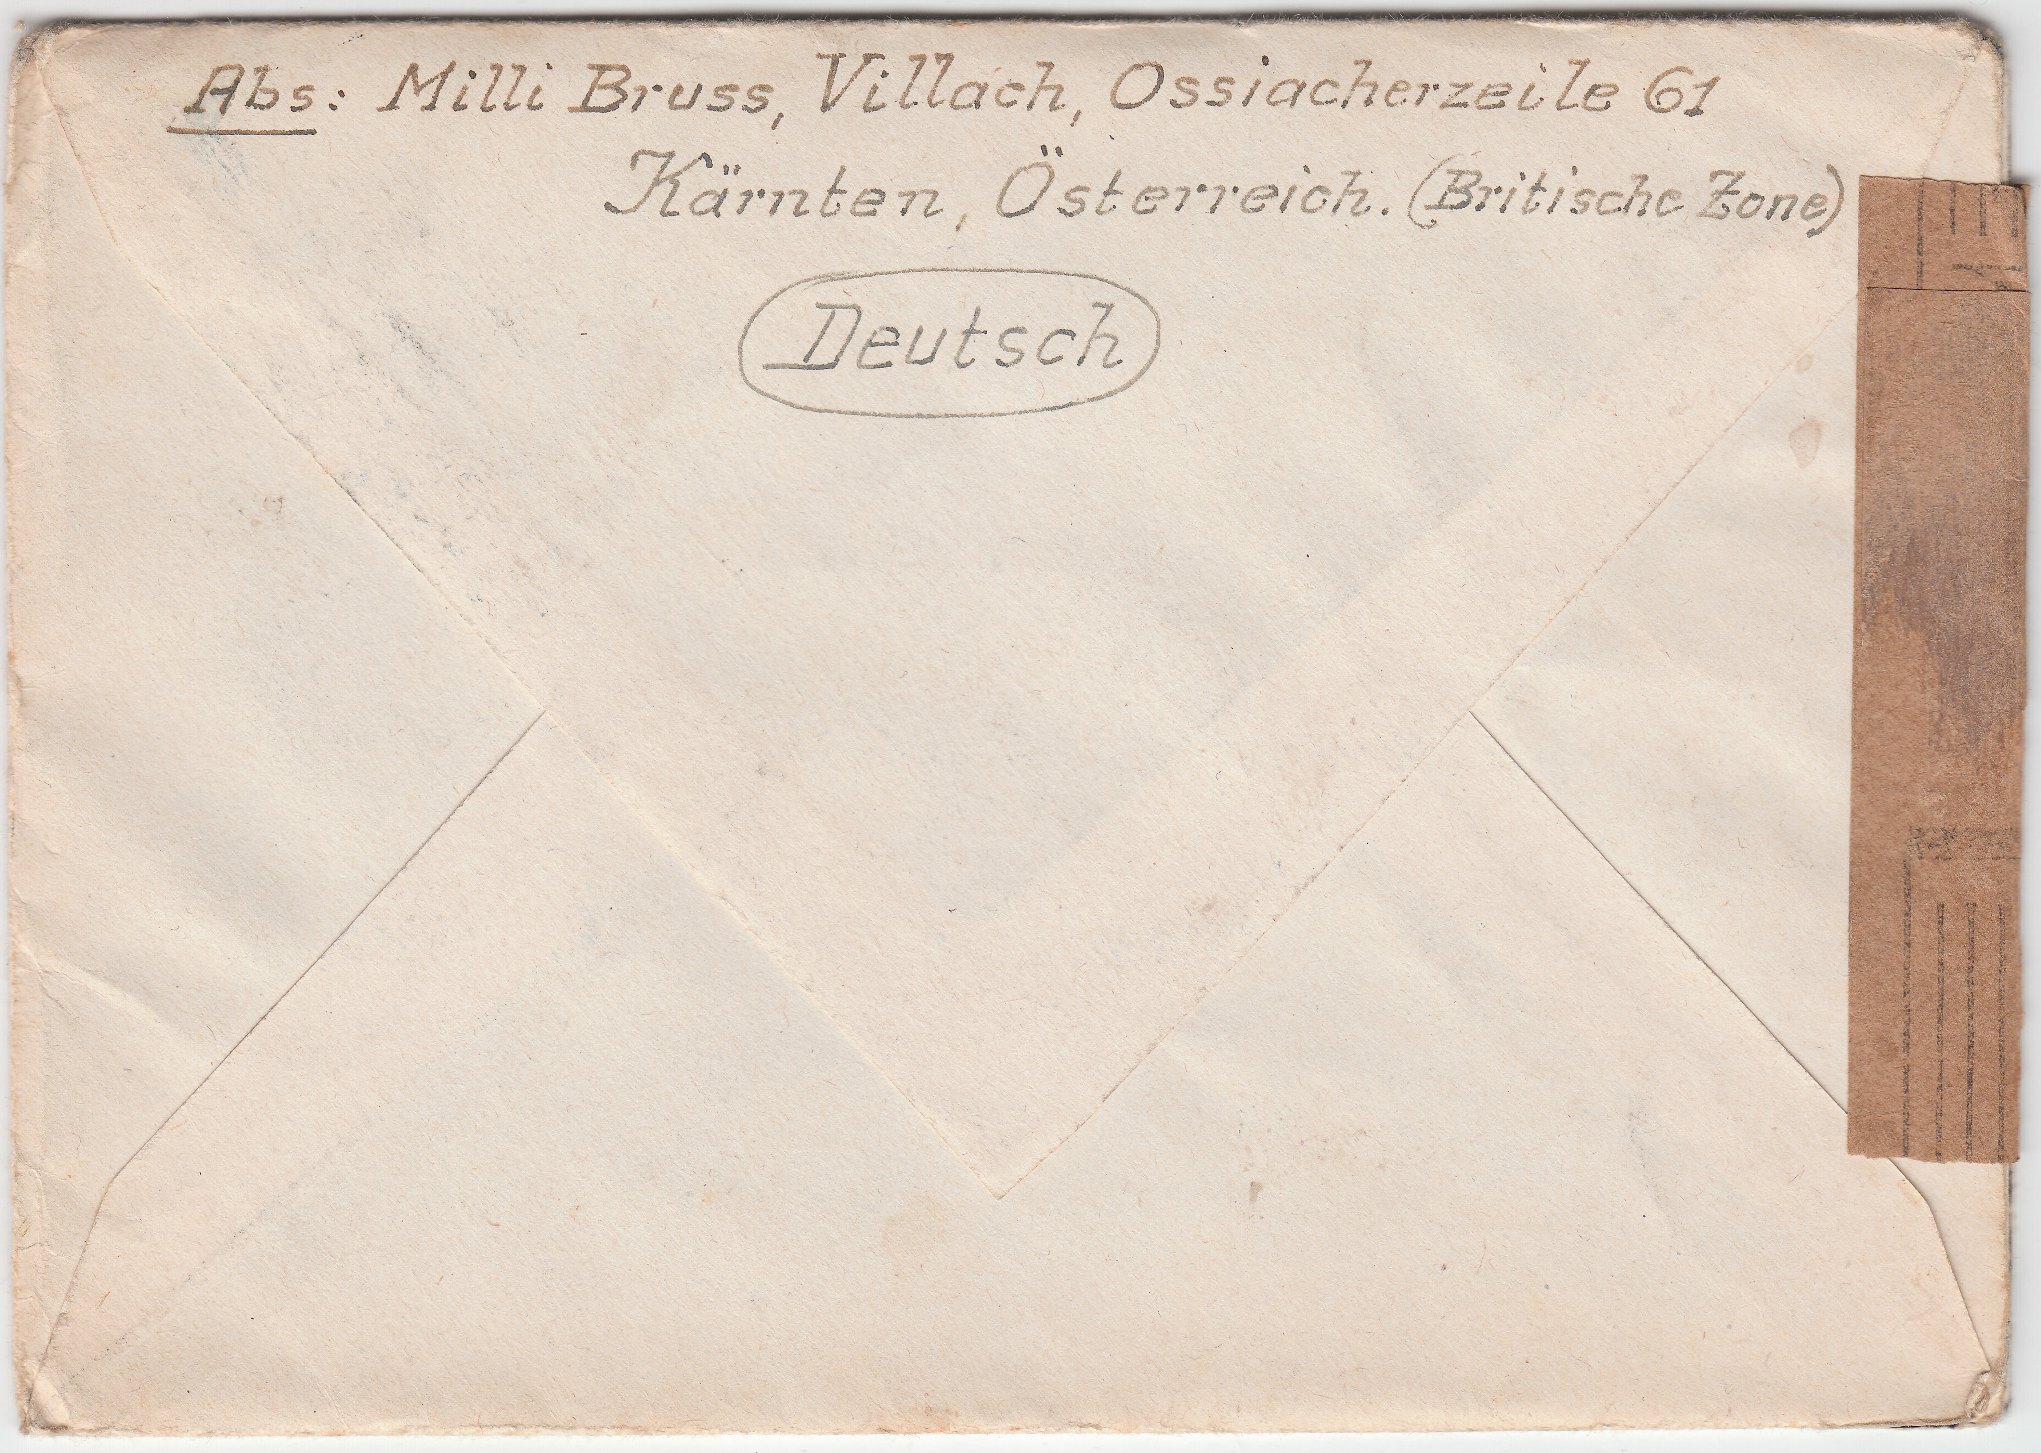 Abs: Milli Bruss, Villach, Ossiacherzeile 61
Kärnten, Österreich. (Britische Zone)
Deutsch